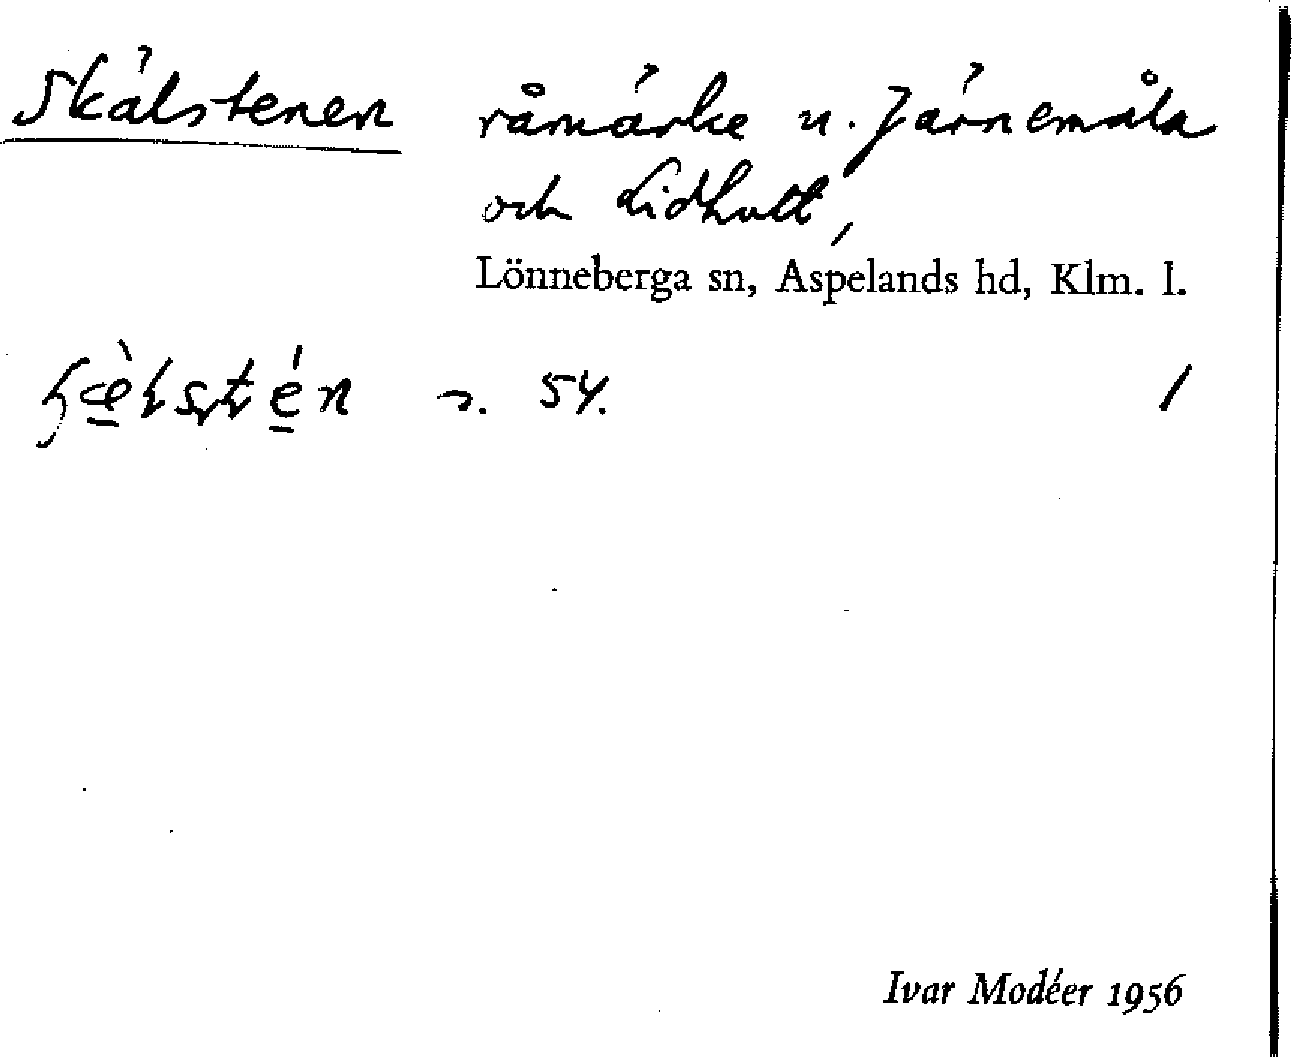 Skälstenen råmärke n. Järnemåla
och Lidhult,
Lönneberga sn, Aspelands hd, Klm. l.
54. /
Ivar Modéer 1956